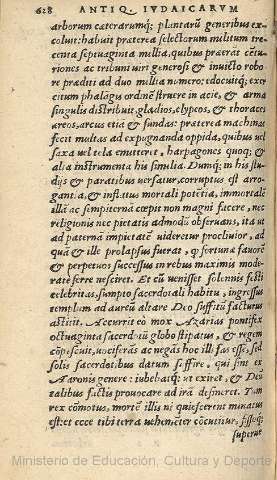 628 ANTIQ. IVDAICARVM
arborum cæterarumq; plantarũ generibus ex
coluit: habuit præterea selectorum militum tre
centa septuaginta millia, quibus præerat cētu-
riones ac tribuni viri generosi & inuicto robo
re præditi ad duo millia numero: edocuitq; exer
citum phalangis ordine struere in acie, & arma
singulis distribuit, gladios, clypeos, & thoraces
æreos, arcus etiã & fundas: præterea machinas
fecit multas ad expugnanda oppida, quibus vel
saxa vel tela emitteret, harpagones quoq; &
alia instrumenta his similia. Dumq; in his stu-
dijs & paratibus versatur, corruptus est arro-
gantia, & inflatus mortali potētia, immortalē
illã ac sempiternã cœpit non magni facere, nec
religionis nec pietatis admodũ obseruans, ita ut
ad paterna impietatē uideretur procliuior, ad
quã & ille prolapsus fuerat, q fortunæ fauorē
& perpetuos successus in rebus maximis mode-
ratè ferre nesciret. Et cũ venisset solennis festi
celebritas, sumpto sacerdotali habitu, ingressus
templum ad aureũ altare Deo suffitũ facturus
astitit. Accurrit eò mox Azarias pontifex
octuaginta sacerdotũ globo stipatus, & regem
cōpescuit, vociferãs ac negãs hoc illi fas esse, sed
solis sacerdotibus datum suffire, qui sint ex
Aaronis genere: iubebatq; ut exiret, & Deũ
talibus factis prouocare ad irã desineret. Tum
rex cōmotus, mortē illis ni quiescerent minatus
est: et ecce tibi terra vehemēter cōcutitur,
superne
Ministerio de Educación, Cultura y Deporte